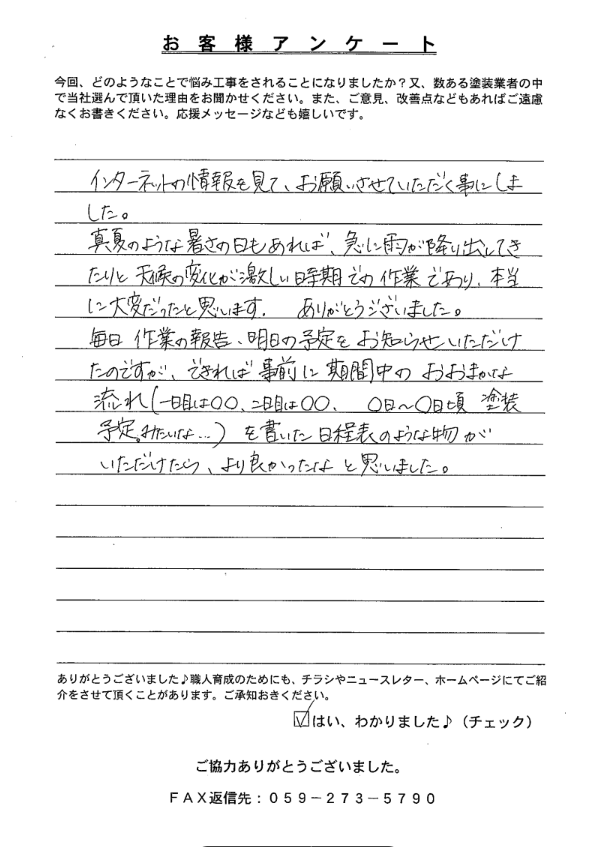 お客様アンケート
今回、どのようなことで悩み工事をされることになりましたか？又、数ある塗装業者の中
で当社選んで頂いた理由をお聞かせください。また、ご意見、改善点などもあればご遠慮
なくお書きください。応援メッセージなども嬉しいです。
インターネットの情報を見て、お願いさせていただく事にしま
した。
真夏のような暑さの日もあれば、急に雨が降り出してき
たりと天候の変化が激しい時期での作業であり、本当
に大変だったと思います． ありがとうございました。
毎日 作業の報告、明日の予定を お知らせいただけ
たのですが、できれば事前に期間中の おおまかな
流れ（一日目は〇〇、二日目は〇〇、 〇日〜〇日頃 塗装
予定。みたいな…）を書いた日程表のような物が
いただけたら、より良かったなと思いました。
ありがとうございました♪職人育成のためにも、チラシやニュースレター、ホームページにてご紹
介をさせて頂くことがあります。ご承知おきください。
☑はい、わかりました♪（チェック）
ご協力ありがとうございました。
ＦＡＸ返信先：０５９－２７３－５７９０